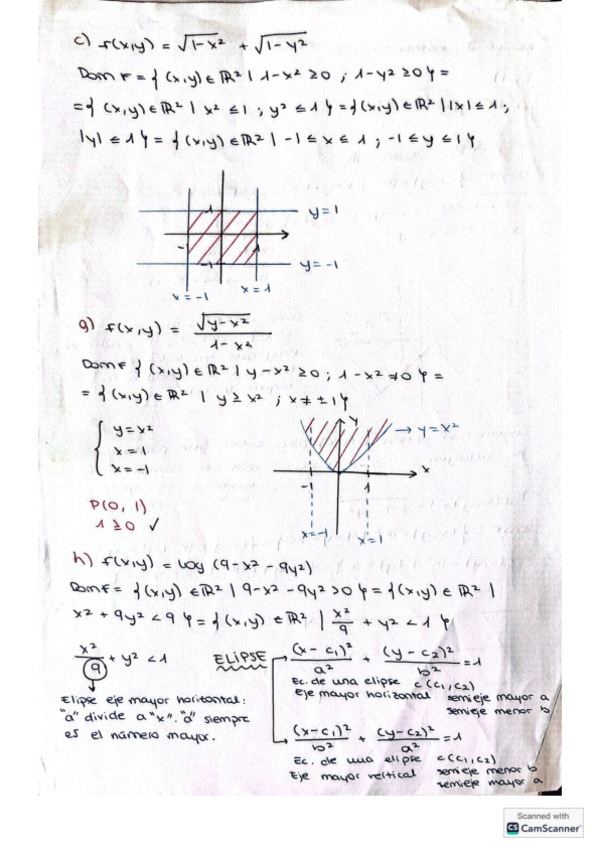 c) f(x,y) = √1-x² + √1-y²
Dom f = { (x,y) ∈ ℝ² | 1-x² ≥ 0 ; 1-y² ≥ 0 } =
= { (x,y) ∈ ℝ² | x² ≤ 1 ; y² ≤ 1 } = { (x,y) ∈ ℝ² | |x| ≤ 1 ;
|y| ≤ 1 } = { (x,y) ∈ ℝ² | -1 ≤ x ≤ 1 ; -1 ≤ y ≤ 1 }
1
y=1
-1
1
-1
y=-1
x=-1
x=1
g) f(x,y) = √y-x² / 1-x²
Dom f { (x,y) ∈ ℝ² | y-x² ≥ 0 ; 1-x² ≠ 0 } =
= { (x,y) ∈ ℝ² | y ≥ x² ; x ≠ ±1 }
y=x²
x=1
x=-1
y
→ y=x²
x
-1
1
x=-1
x=1
P(0, 1)
1 ≥ 0 ✓
h) f(x,y) = log (9-x²-9y²)
Dom f = { (x,y) ∈ ℝ² | 9-x²-9y² > 0 } = { (x,y) ∈ ℝ² |
x² + 9y² < 9 } = { (x,y) ∈ ℝ² | x²/9 + y² < 1 }
x²/9 + y² < 1
Elipse eje mayor horizontal:
"a" divide a "x". "a" siempre
es el número mayor.
ELIPSE
(x-c₁)²/a² + (y-c₂)²/b² = 1
Ec. de una elipse c(c₁,c₂)
Eje mayor horizontal semieje mayor a
semieje menor b
(x-c₁)²/b² + (y-c₂)²/a² = 1
Ec. de una elipse c(c₁,c₂)
Eje mayor vertical semieje menor b
semieje mayor a
Scanned with
CS CamScanner